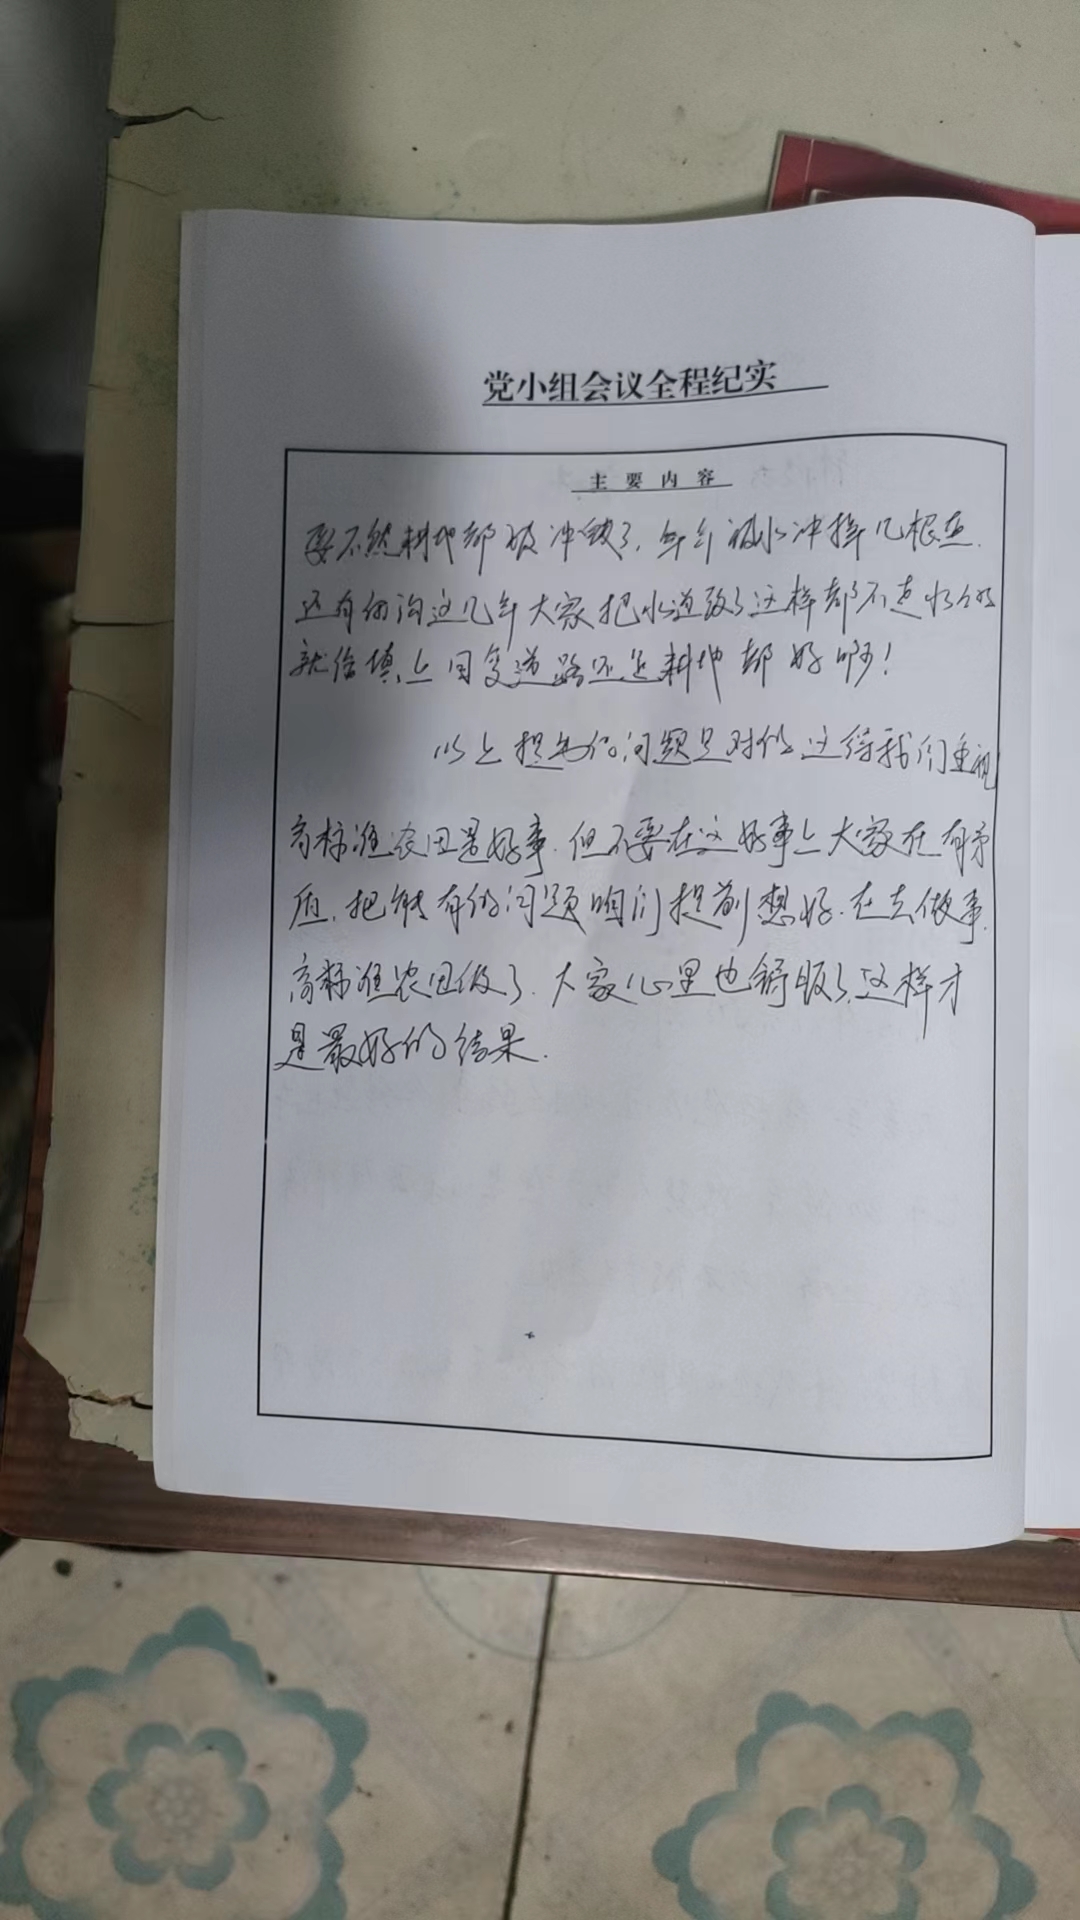 党小组会议全程纪实
主要内容
要不然耕地都被冲毁了,年年被水冲掉几根垄.
还有的沟这几年大家把水道改了这样都不走水的
就给填上田变道路还是耕地都好啊!
以上提出的问题是对的,这得我们重视
高标准农田是好事.但不要在这好事上大家在有矛
盾.把能有的问题咱们提前想好.在去做事.
高标准农田做了.大家心里也舒服了,这样才
是最好的结果.